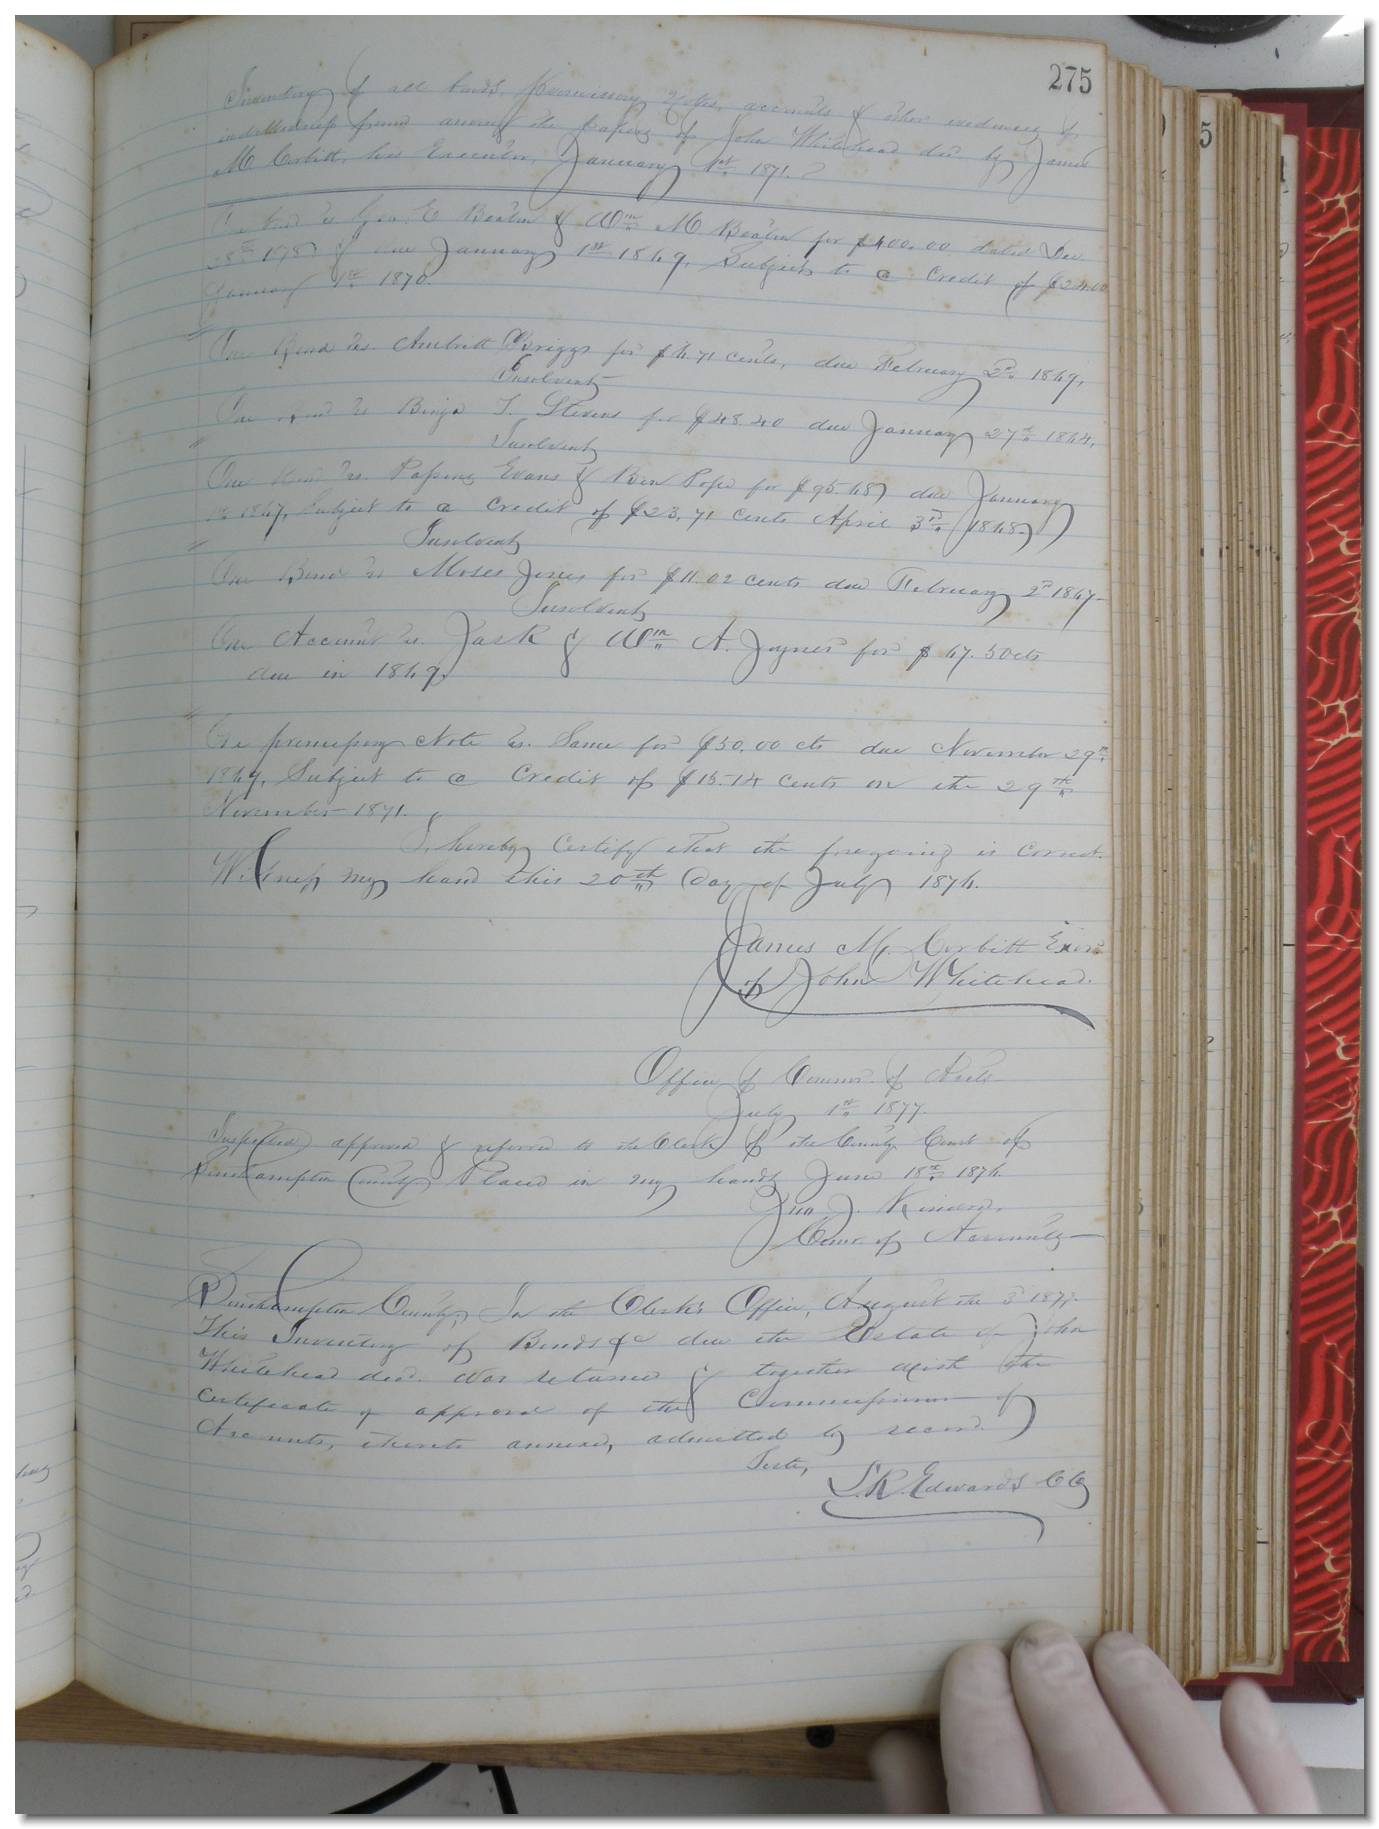 275
Inventory of all bonds, Promissory Notes, accounts & other evidences of
indebtedness found among the papers of John Whitehead decd. by James
M Corbitt, his Executor, January 1st 1871.
One bond vs Geo. E Beaton & Wm M Beaton for $400.00 dated Dec
28th & due January 1st 1869, Subject to a Credit of $24.00
January 1st 1870.
One Bond vs. Briggs for $6.71 cents, due February 2d 1869,
Insolvent
One Bond vs Benja T. Stevens for $48.40 due January 27th 1864,
Insolvent
One Bond vs. Evans & Ben Pope for due January
1st 1867, Subject to a Credit of $23.71 cents April 3d 1868
Insolvent
One Bond vs Moses Jones for $11.02 cents due February 2d 1867
Insolvent
One Account vs. Jack & Wm A. Joyner for $67.50cts
due in 1869,
One promissory Note vs. Same for $50.00 cts due November 29th
1869, Subject to a Credit of $15.74 cents on the 29th
November 1871.
I, hereby Certify that the foregoing is Correct.
Witness my hand this 20th Day of July 1876.
James M. Corbitt Exor.
of John Whitehead.
Office of Commr. of Accts
July 1st 1877.
Inspected approved & referred to the Clerk of the County Court of
Southampton County Placed in my hands June 18th 1876.
Jno J. Kindred,
Comr. of Accounts
Southampton County, In the Clerk's Office, August the 3d 1877.
This Inventory of Bonds &c due the Estate of John
Whitehead decd. was returned & together with the
Certificate of approval of the Commissioner of
Accounts, thereto annexed, admitted to record.
Teste,
L.R. Edwards CC
5